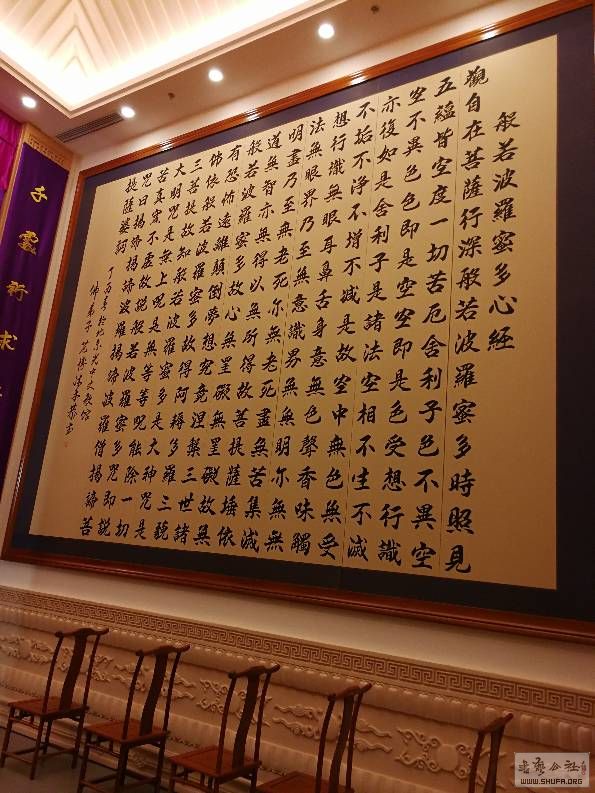 般若波羅蜜多心經
觀自在菩薩行深般若波羅蜜多時照見
五蘊皆空度一切苦厄舍利子色不異空
空不異色色即是空空即是色受想行識
亦復如是舍利子是諸法空相不生不滅
不垢不淨不增不減是故空中無色無受
想行識無眼耳鼻舌身意無色聲香味觸
法無眼界乃至無意識界無無明亦無無
明盡乃至無老死亦無老死盡無苦集滅
道無智亦無得以無所得故菩提薩埵依
般若波羅蜜多故心無罣礙無罣礙故無
有恐怖遠離顛倒夢想究竟涅槃三世諸
佛依般若波羅蜜多故得阿耨多羅三藐
三菩提故知般若波羅蜜多是大神咒是
大明咒是無上咒是無等等咒能除一切
苦真實不虛故說般若波羅蜜多咒即說
咒曰揭諦揭諦波羅揭諦波羅僧揭諦菩
提薩婆訶
丁酉春於北京光中文教館
佛弟子恭書
子靈術求
書藝公社
WWW.SHUFA.ORG